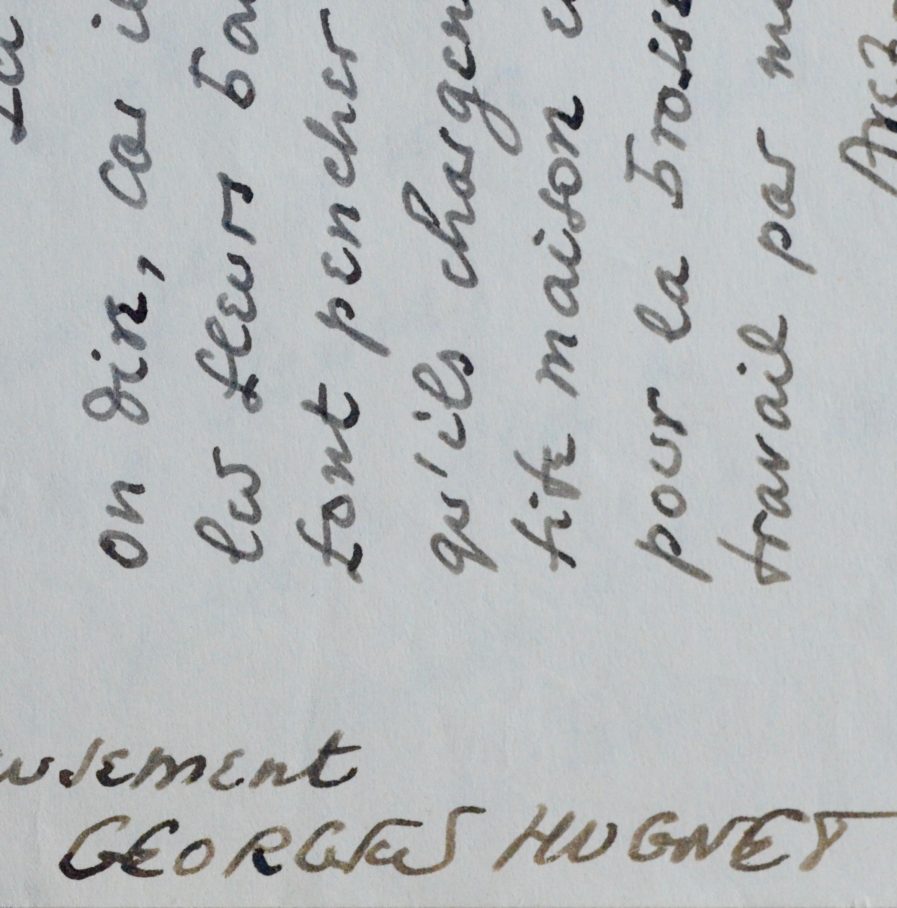 on dire, car il
les fleurs
font pencher
qu'ils chargen
tite maison
pour la brosse
travail par
usement
GEORGES HUGNET